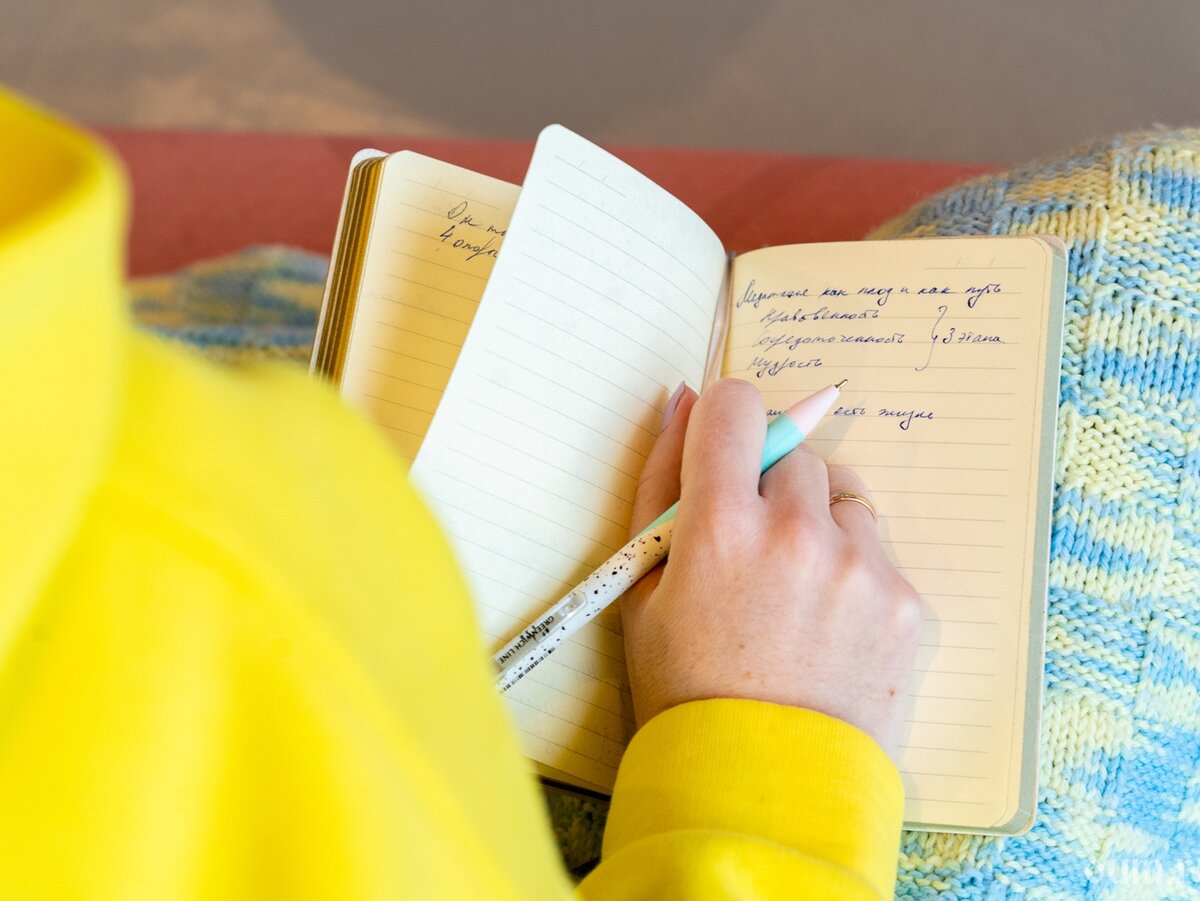 Он
4 опоры
Медитация как плод и как путь
Нравственность
Сосредоточенность
Мудрость
3 этапа
есть жизнь
GREENWICH LINE